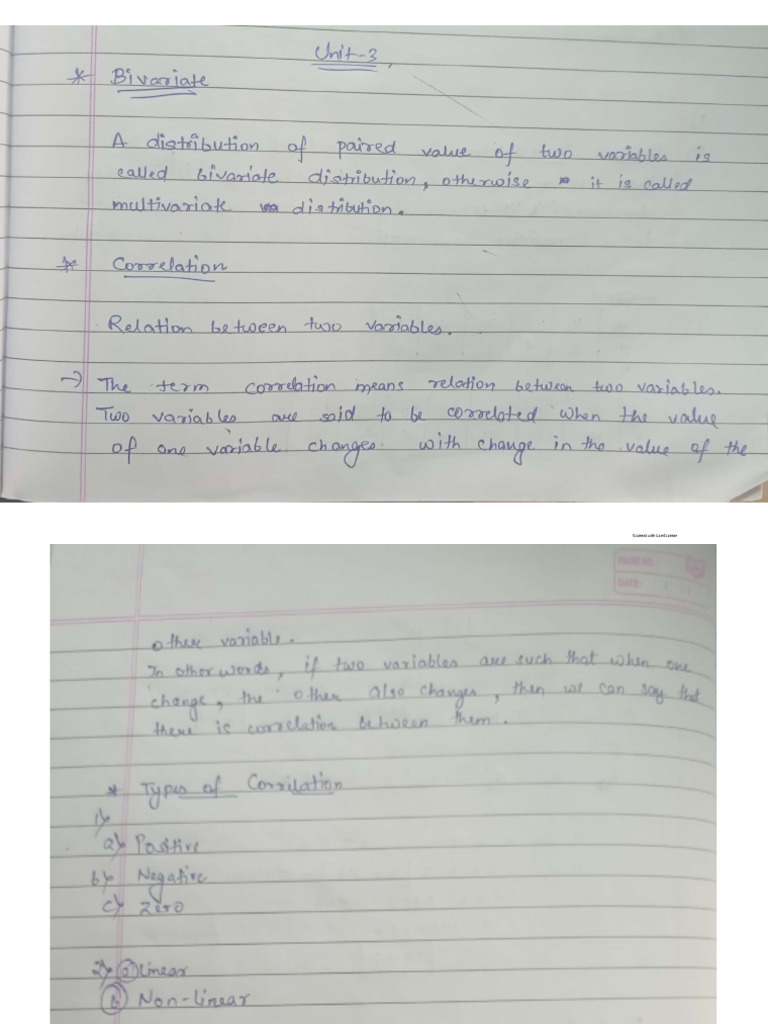 Unit-3,
* Bivariate
A distribution of paired value of two variables is
called bivariate distribution, otherwise it is called
multivariate distribution.
* Correlation
Relation between two variables.
→ The term correlation means relation between two variables.
Two variables are said to be correlated when the value
of one variable changes with change in the value of the
Scanned with CamScanner
PAGE NO.
DATE: / /
other variable.
In other words, if two variables are such that when one
change, the other also changes, then we can say that
there is correlation between them.
* Types of Corrilation
1)
a) Positive
b) Negative
c) Zero
2) a) Linear
b) Non-linear